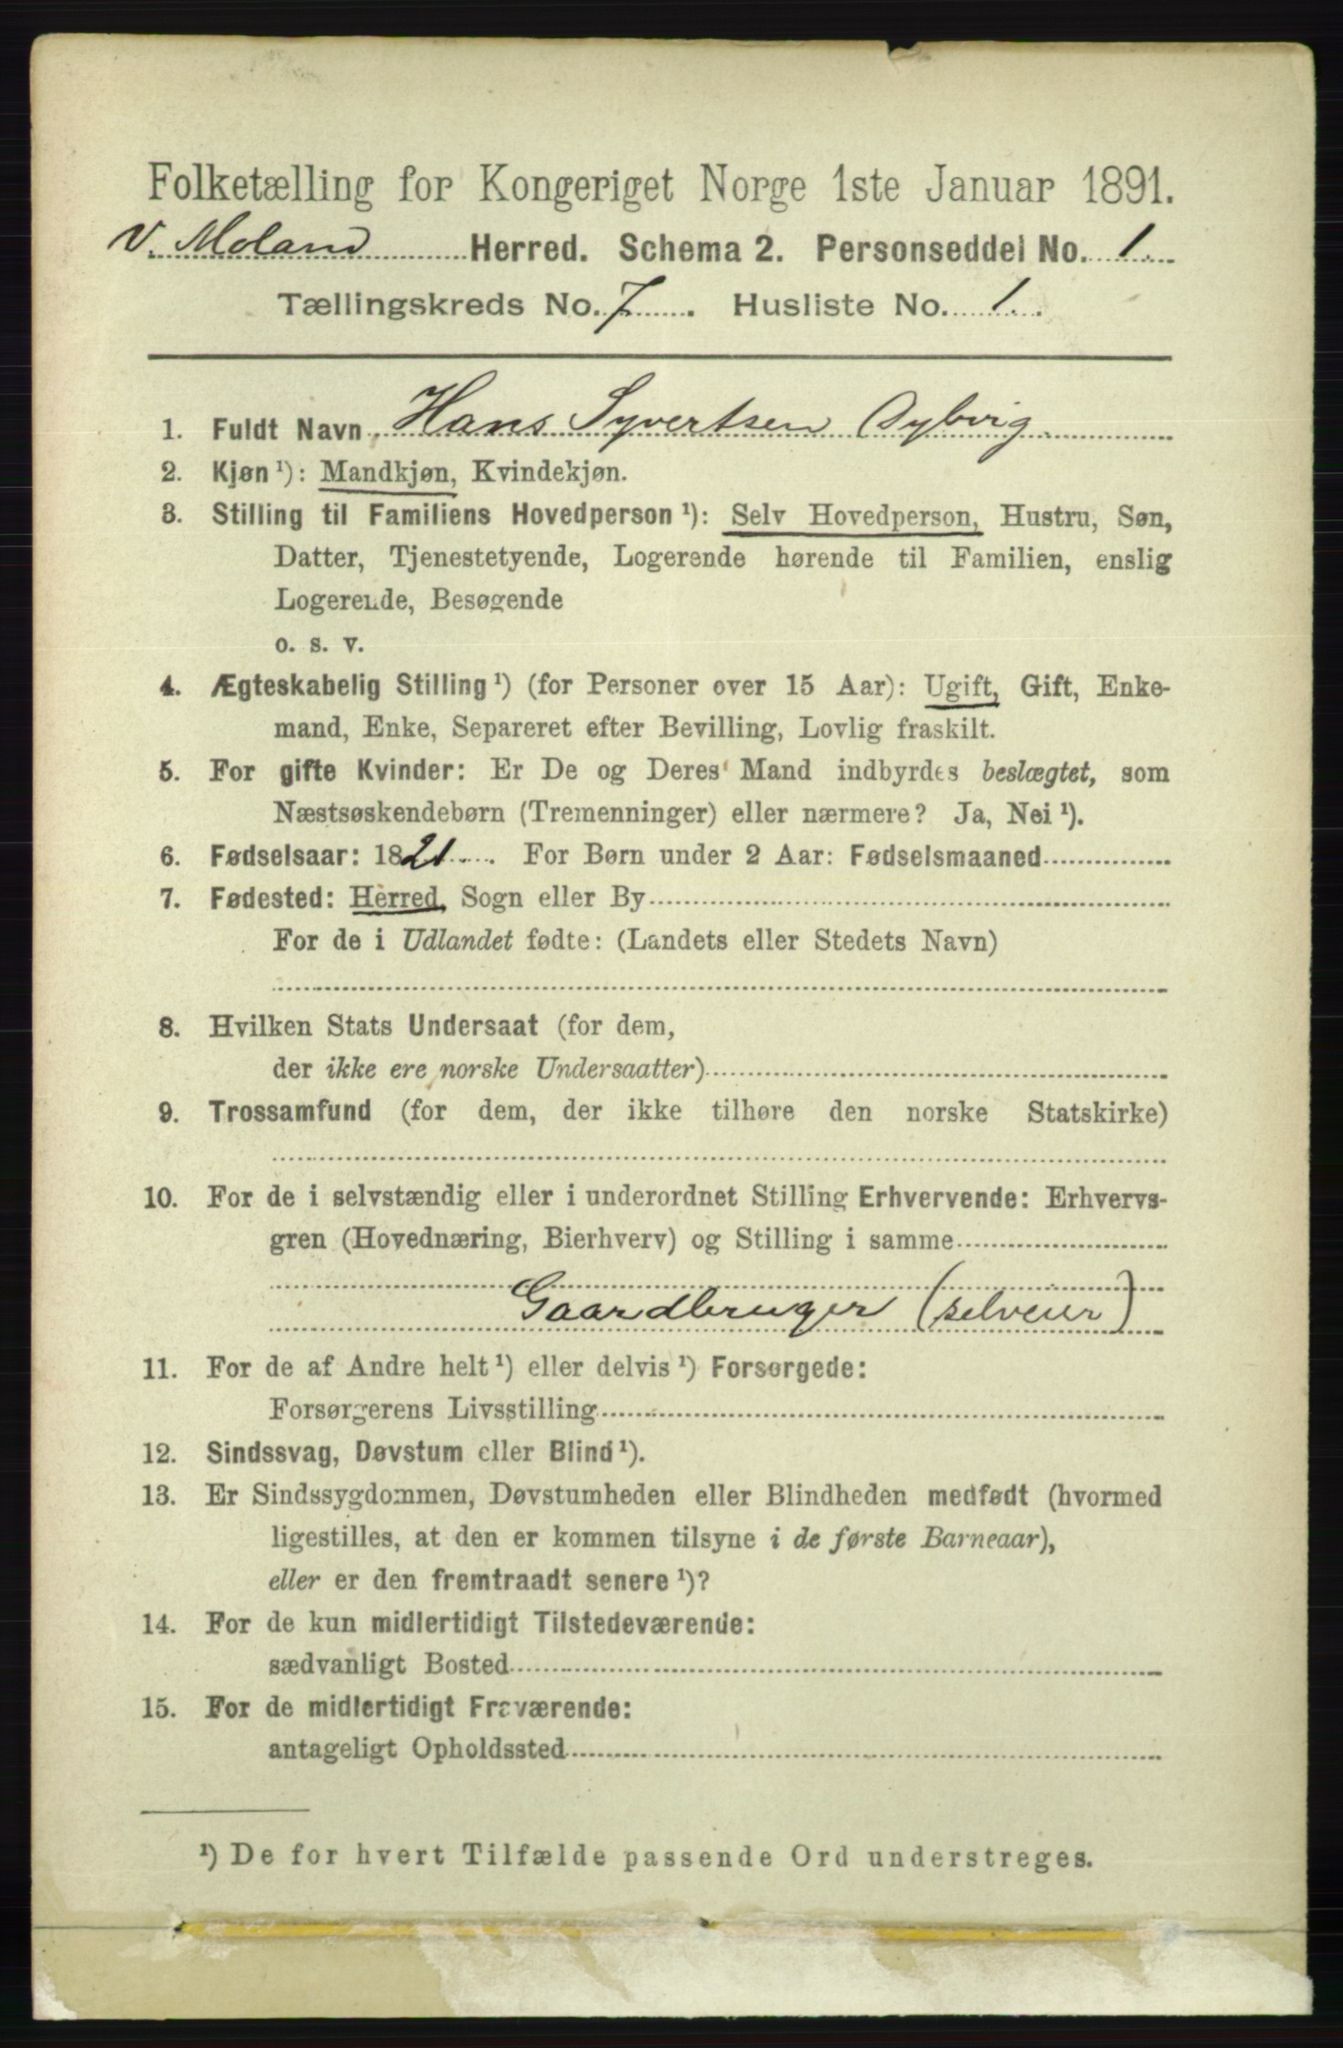 Folketælling for Kongeriget Norge 1ste Januar 1891.
V. Moland Herred. Schema 2. Personseddel No. 1.
Tællingskreds No. 7. Husliste No. 1.
1. Fuldt Navn Hans Syvertsen
2. Kjøn ¹): Mandkjøn, Kvindekjøn.
3. Stilling til Familiens Hovedperson ¹): Selv Hovedperson, Hustru, Søn,
Datter, Tjenestetyende, Logerende hørende til Familien, enslig
Logerende, Besøgende
o. s. v.
4. Ægteskabelig Stilling ¹) (for Personer over 15 Aar): Ugift, Gift, Enke-
mand, Enke, Separeret efter Bevilling, Lovlig fraskilt.
5. For gifte Kvinder: Er De og Deres Mand indbyrdes beslægtet, som
Næstsøskendebørn (Tremenninger) eller nærmere? Ja, Nei ¹).
6. Fødselsaar: 1821. For Børn under 2 Aar: Fødselsmaaned
7. Fødested: Herred, Sogn eller By
For de i Udlandet fødte: (Landets eller Stedets Navn)
8. Hvilken Stats Undersaat (for dem,
der ikke ere norske Undersaatter)
9. Trossamfund (for dem, der ikke tilhøre den norske Statskirke)
10. For de i selvstændig eller i underordnet Stilling Erhvervende: Erhvervs-
gren (Hovednæring, Bierhverv) og Stilling i samme
Gaardbruger (selveier)
11. For de af Andre helt ¹) eller delvis ¹) Forsørgede:
Forsørgerens Livsstilling
12. Sindssvag, Døvstum eller Blind ¹).
13. Er Sindssygdommen, Døvstumheden eller Blindheden medfødt (hvormed
ligestilles, at den er kommen tilsyne i de første Barneaar),
eller er den fremtraadt senere ¹)?
14. For de kun midlertidigt Tilstedeværende:
sædvanligt Bosted
15. For de midlertidigt Fraværende:
antageligt Opholdssted
¹) De for hvert Tilfælde passende Ord understreges.